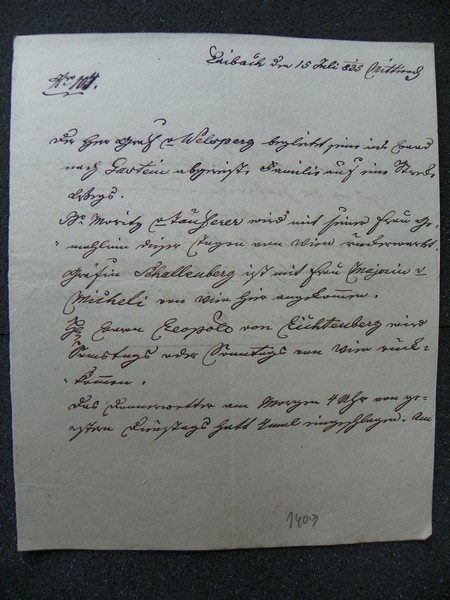 Laibach den 15 Juli 835 Mittwoch
Nro 104.
Der Herr Graf v Welsperg begleitet seine
nach Gastein abgereiste Familie auf eine Strecke
Wegs.
Br. Moritz v Taufferer wird mit seiner Frau Ge-
mahlin dieser Tagen von Wien rückerwartet.
Gräfin Schallenberg ist mit Frau Majorin v
Micheli von Wien hier angekommen.
Baron Leopold von Lichtenberg wird
Samstags oder Sonntags von Wien rück-
kommen.
Das Donnerwetter am Morgen 4 Uhr von ge-
stern Dienstags hatt 4mal eingeschlagen. Am